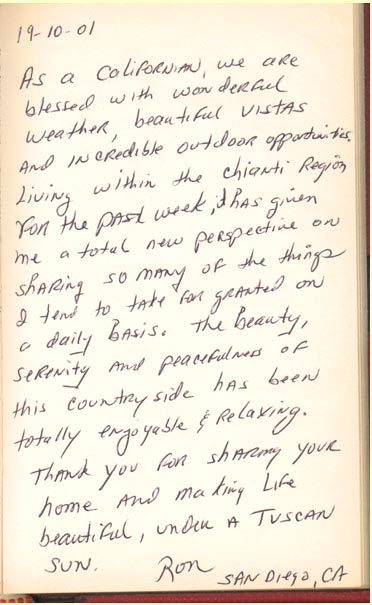 19-10-01
As a Californian, we are
blessed with wonderful
weather, beautiful vistas
and incredible outdoor opportunities.
Living within the Chianti Region
for the past week, it has given
me a total new perspective on
sharing so many of the things
I tend to take for granted on
a daily basis. The beauty,
serenity and peacefulness of
this countryside has been
totally engoyable & relaxing.
Thank you for sharing your
home and making life
beautiful, under a Tuscan
sun. Ron
San Diego, CA